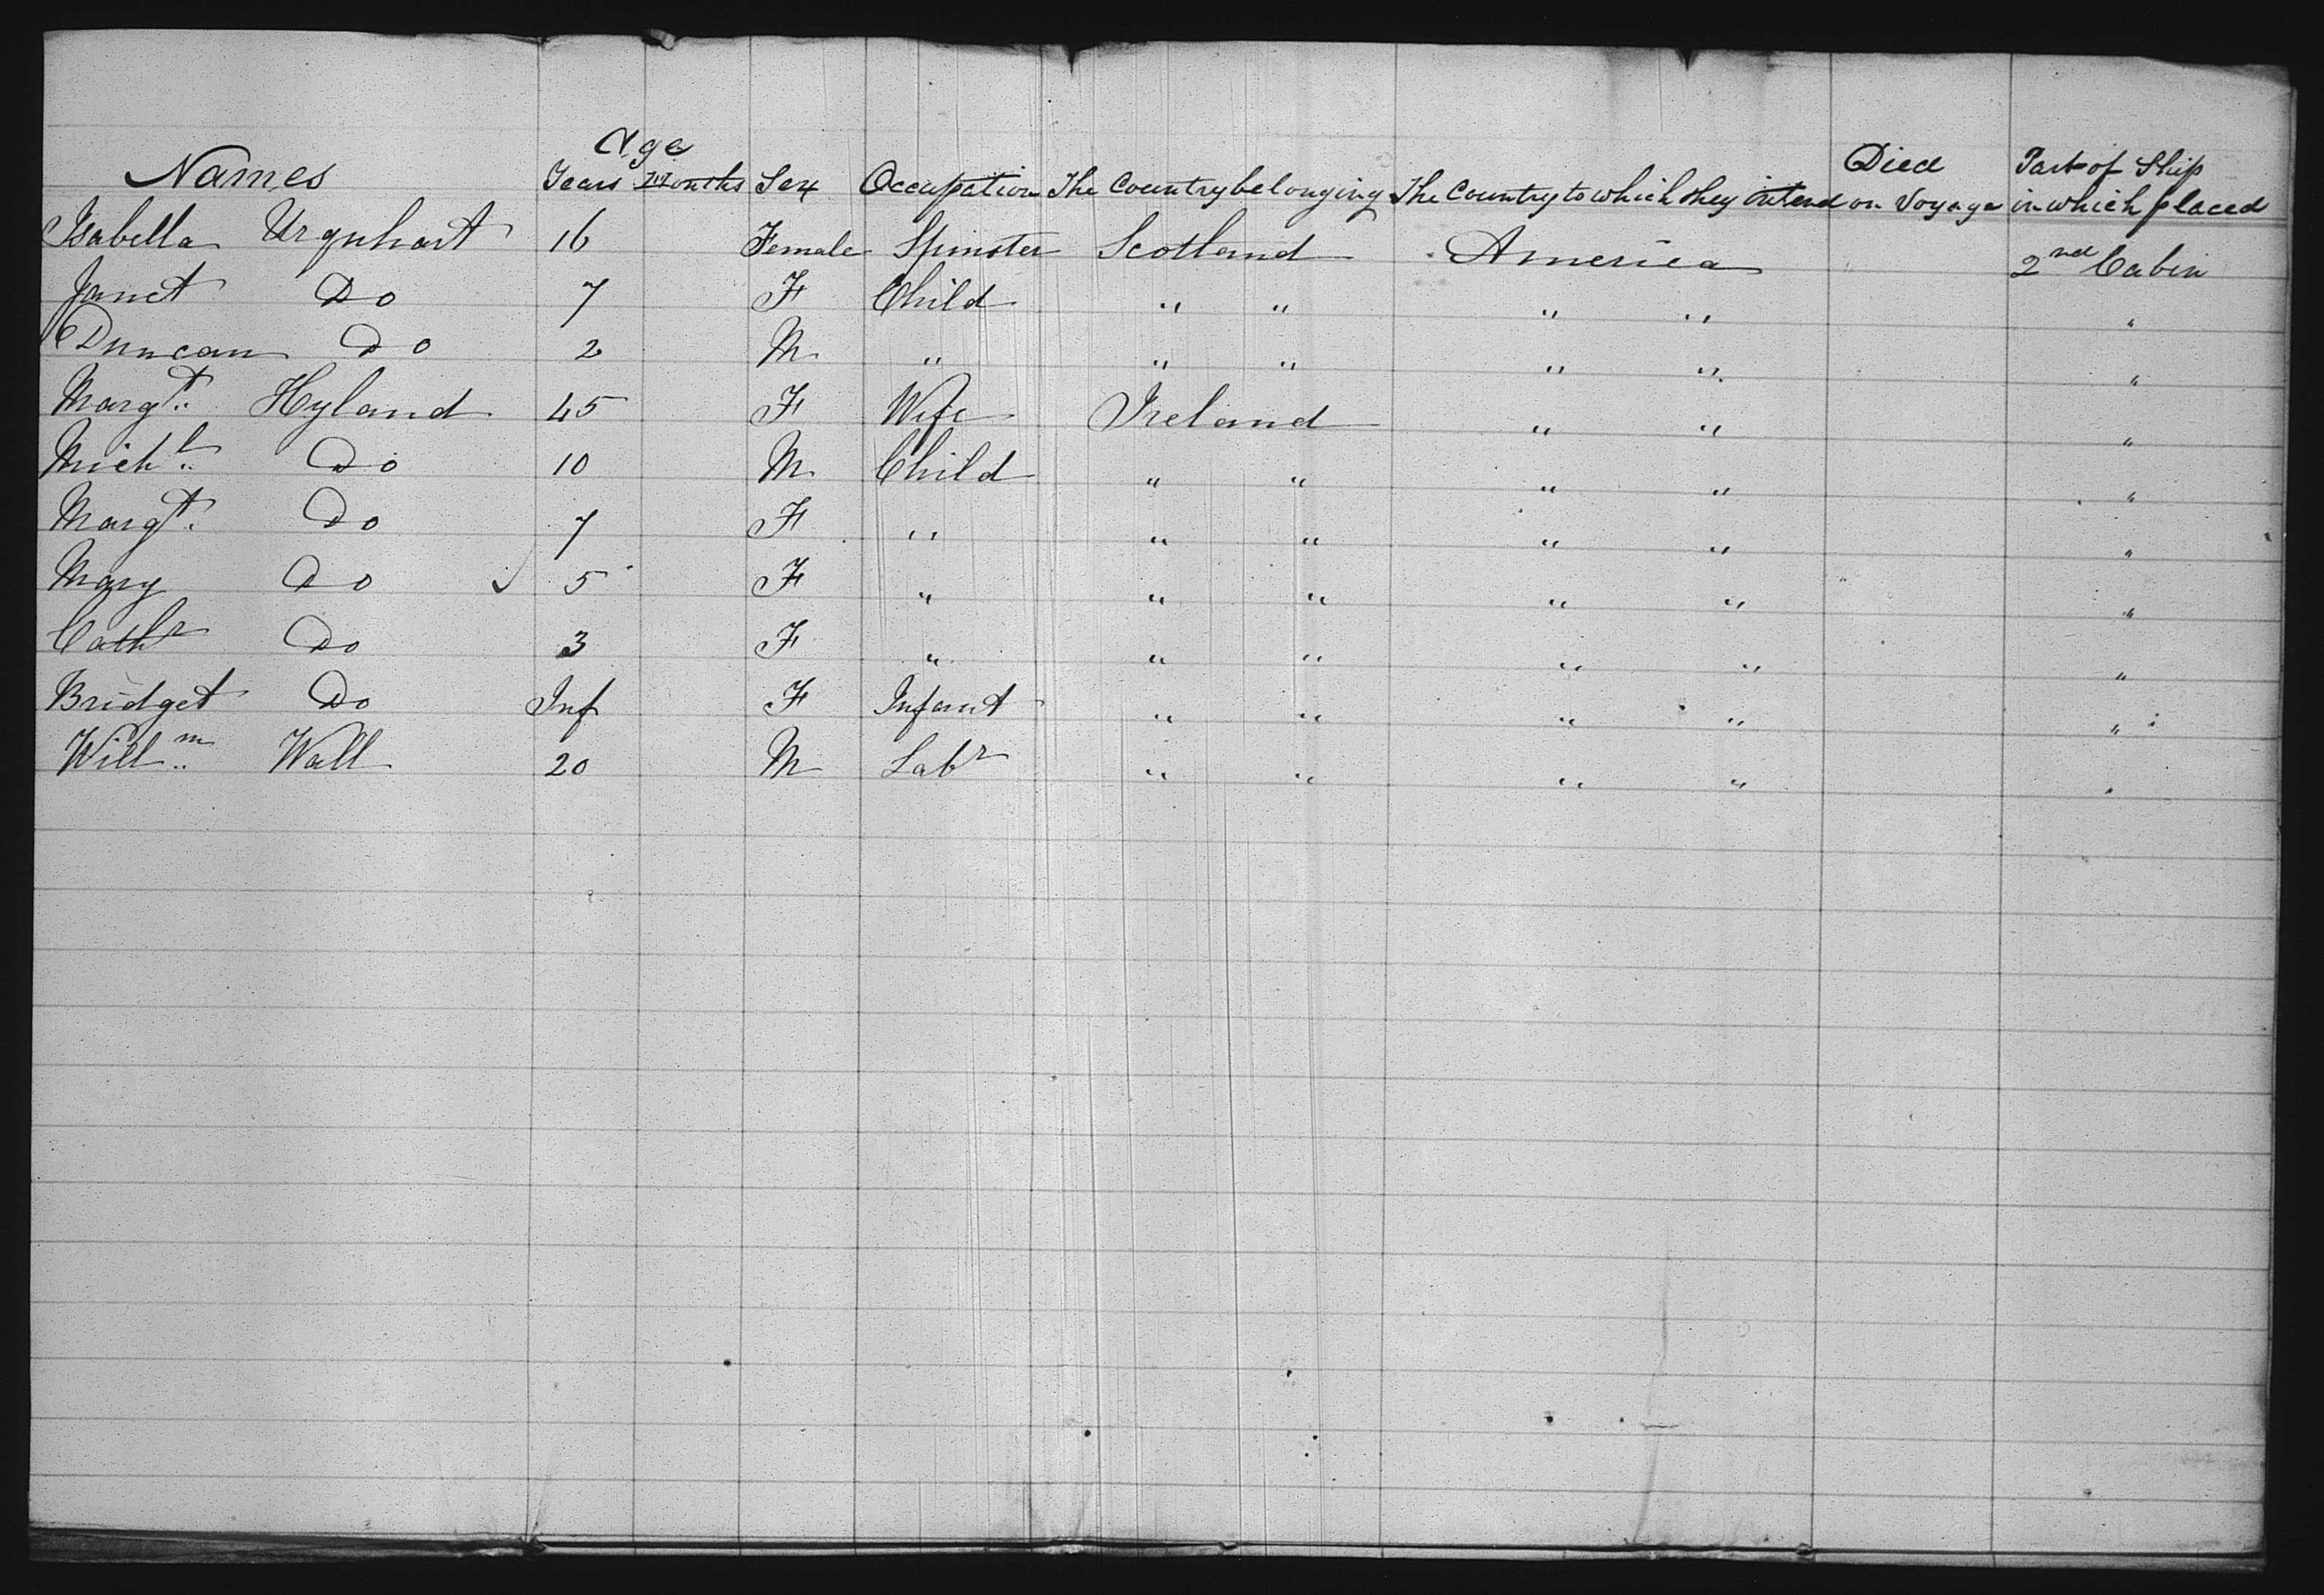 Age Died Part of Ship
Names Years Months Sex Occupation The Country belonging The Country to which they intend on Voyage in which placed
Isabella Urquhart 16 Female Spinster Scotland America 2nd Cabin
Janet Do 7 F Child " " " " "
Duncan Do 2 M " " " " " "
Margt. Hyland 45 F Wife Ireland " " "
Michl. Do 10 M Child " " " " "
Margt. Do 7 F " " " " " "
Mary Do ✓ 5 F " " " " " "
Cathr Do 3 F " " " " " "
Bridget Do Inf F Infant " " " " "
Willm. Wall 20 M Labr " " " " "